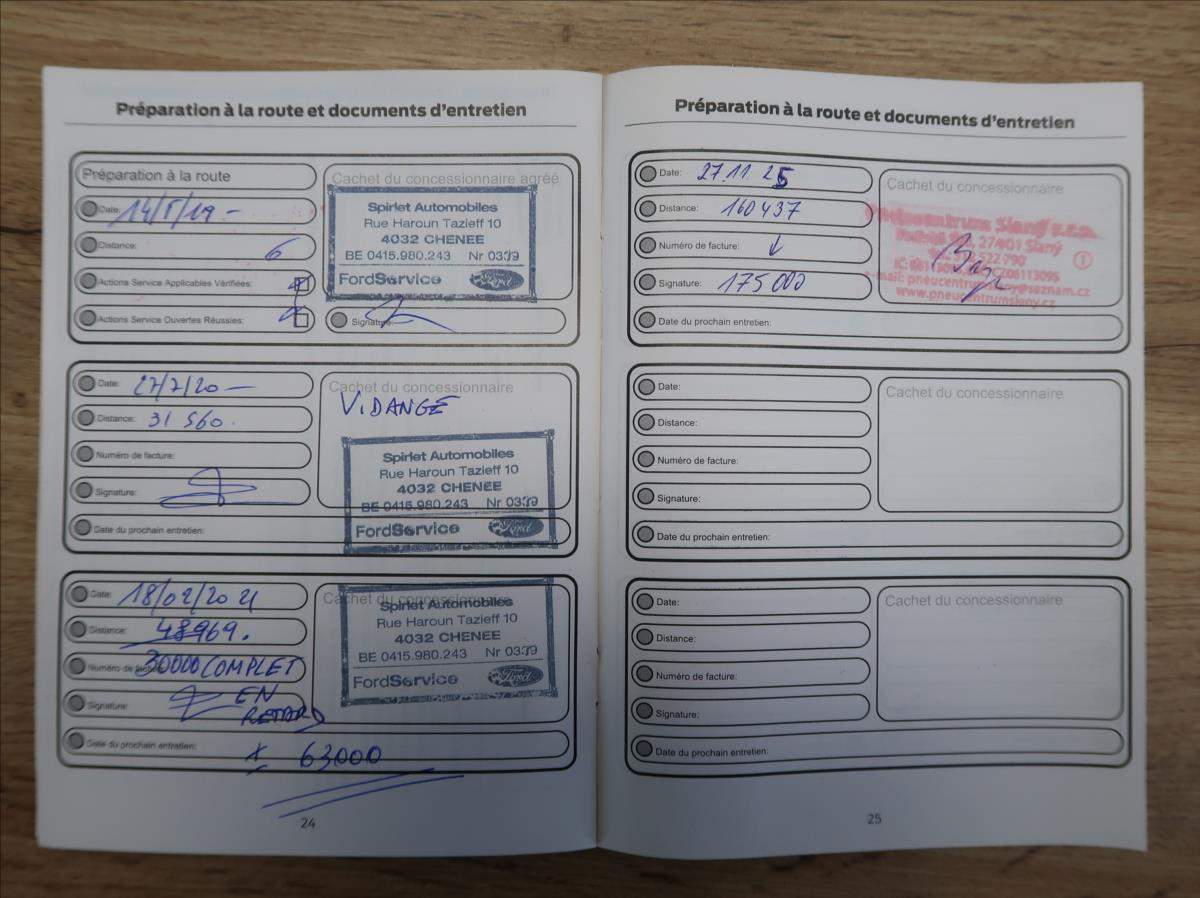 Préparation à la route et documents d'entretien
Préparation à la route
Date: 14/5/19 -
Distance: 6
Actions Service Applicables Vérifiées:
Actions Service Ouvertes Réussies:
Cachet du concessionnaire agréé
Spirlet Automobiles
Rue Haroun Tazieff 10
4032 CHENEE
BE 0415.980.243 Nr 03379
FordService Ford
Signature:
Date: 27/7/20 -
Distance: 31 560.
Numéro de facture:
Signature:
Date du prochain entretien:
Cachet du concessionnaire
VIDANGE
Spirlet Automobiles
Rue Haroun Tazieff 10
4032 CHENEE
BE 0415.980.243 Nr 03379
FordService Ford
Date: 18/02/2021
Distance: 48969.
Numéro de facture: 30000 COMPLET
Signature: EN
RETARD
Date du prochain entretien:
± 63000
Cachet du concessionnaire
Spirlet Automobiles
Rue Haroun Tazieff 10
4032 CHENEE
BE 0415.980.243 Nr 03379
FordService Ford
24
Préparation à la route et documents d'entretien
Date: 27.11.25
Distance: 160437
Numéro de facture: ↓
Signature: 175 000
Date du prochain entretien:
Cachet du concessionnaire
Slaný s.r.o.
27401 Slaný
522 790
CZ06113095
www.pneucentrumslany.cz
Date:
Distance:
Numéro de facture:
Signature:
Date du prochain entretien:
Cachet du concessionnaire
Date:
Distance:
Numéro de facture:
Signature:
Date du prochain entretien:
Cachet du concessionnaire
25